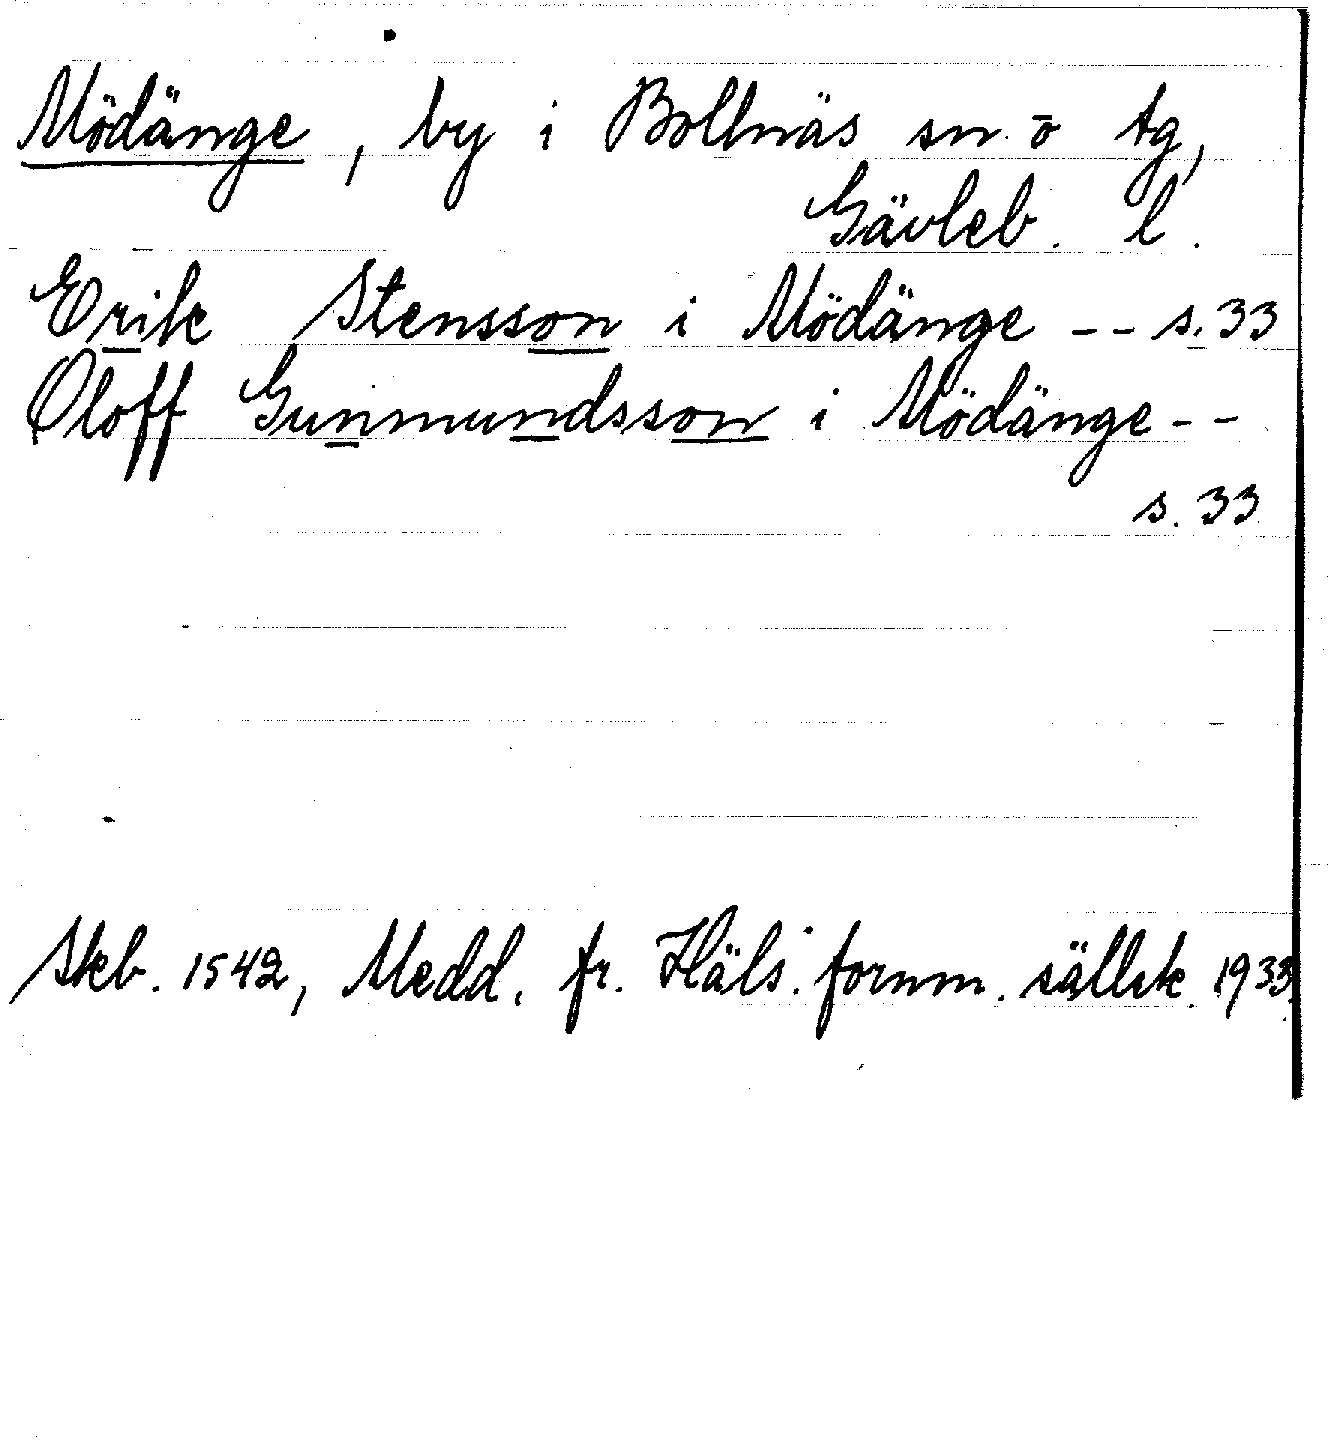 Mödänge, by i Bollnäs sn o tg,
Gävleb. l.
Erik Stensson i Mödänge -- s. 33
Oloff Gunmundsson i Mödänge --
s. 33
Skb. 1542, Medd. fr. Häls. fornm. sällsk. 1933.